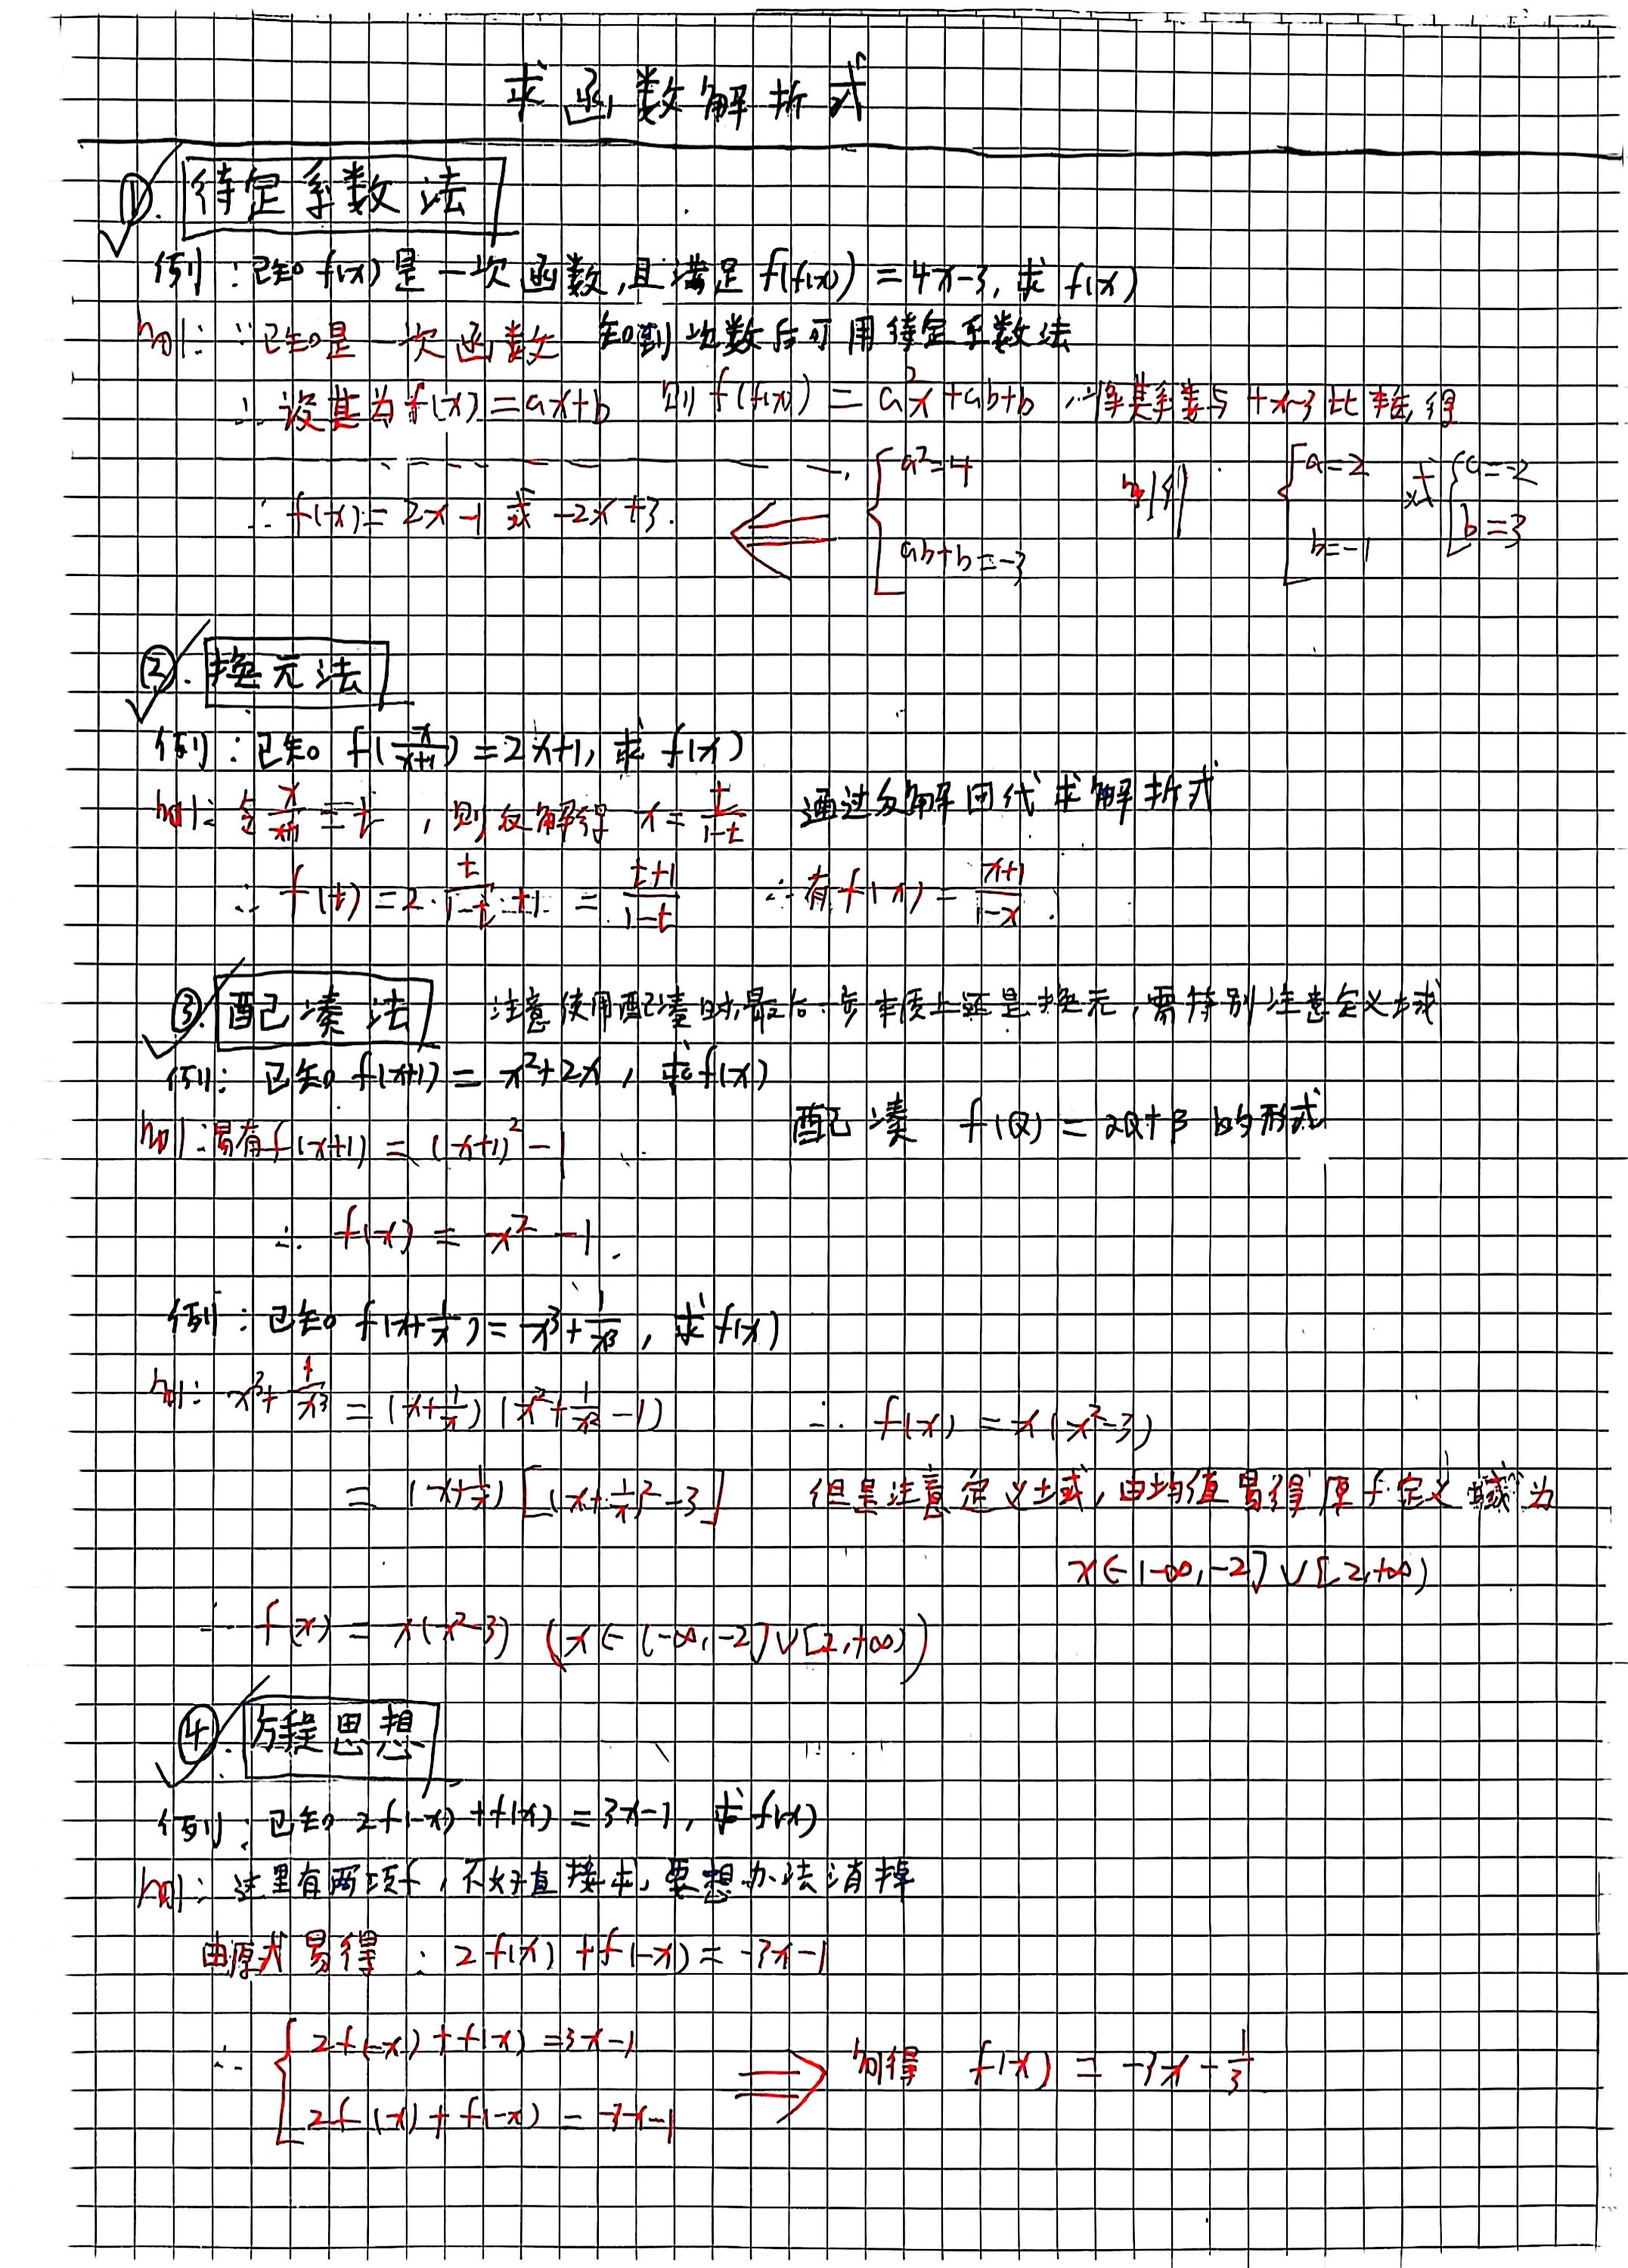 求函数解析式
①. 待定系数法
例：已知 f(x) 是一次函数,且满足 f(f(x)) = 4x-3, 求 f(x)
解: ∵已知是一次函数 知到次数后可用待定系数法
∴ 设其为 f(x) = ax+b 则 f(f(x)) = a²x+ab+b ∴将其系数与 4x-3 比较,得
{ a²=4 ab+b=-3 解得 { a=2 b=-1 或 { a=-2 b=3
∴ f(x) = 2x-1 或 -2x+3.
②. 换元法
例：已知 f(x/(x+1)) = 2x+1, 求 f(x)
解: 令 x/(x+1) = t , 则反解得 x = t/(1-t) 通过反解回代求解析式
∴ f(t) = 2·t/(1-t)+1 = (t+1)/(1-t) ∴有 f(x) = (x+1)/(1-x).
③. 配凑法 注意使用配凑时,最后一步本质上还是换元,需特别注意定义域
例: 已知 f(x+1) = x²+2x , 求f(x)
配凑 f(Q) = αQ+β 的形式
解:易有f(x+1) = (x+1)²-1
∴ f(x) = x²-1.
例: 已知 f(x+1/x) = x³+1/x³ , 求f(x)
解: x³+1/x³ = (x+1/x)(x²+1/x²-1) ∴ f(x) = x(x²-3)
= (x+1/x)[(x+1/x)²-3] 但是注意定义域,由均值易得原f定义域为
x∈(-∞,-2]∪[2,+∞)
∴ f(x) = x(x²-3) (x∈(-∞,-2]∪[2,+∞))
④. 方程思想
例: 已知 2f(-x)+f(x) = 3x-1, 求f(x)
解: 这里有两项f , 不好直接求,要想办法消掉
由原式易得 : 2f(x)+f(-x) = -3x-1
∴ { 2f(-x)+f(x) = 3x-1 ⇒ 解得 f(x) = -3x-1/3
2f(x)+f(-x) = -3x-1